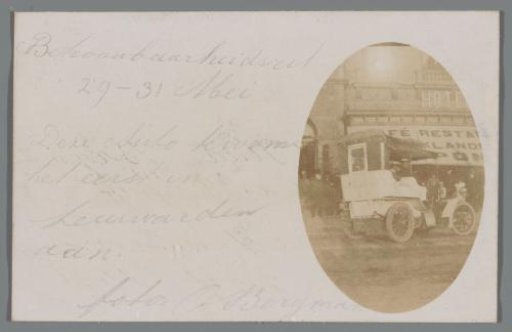 Betrouwbaarheidsrit
29-31 Mei
Deze auto kwam
het eerst in
Leeuwarden
aan.
foto Bergma
FÉ RESTA
KLAND